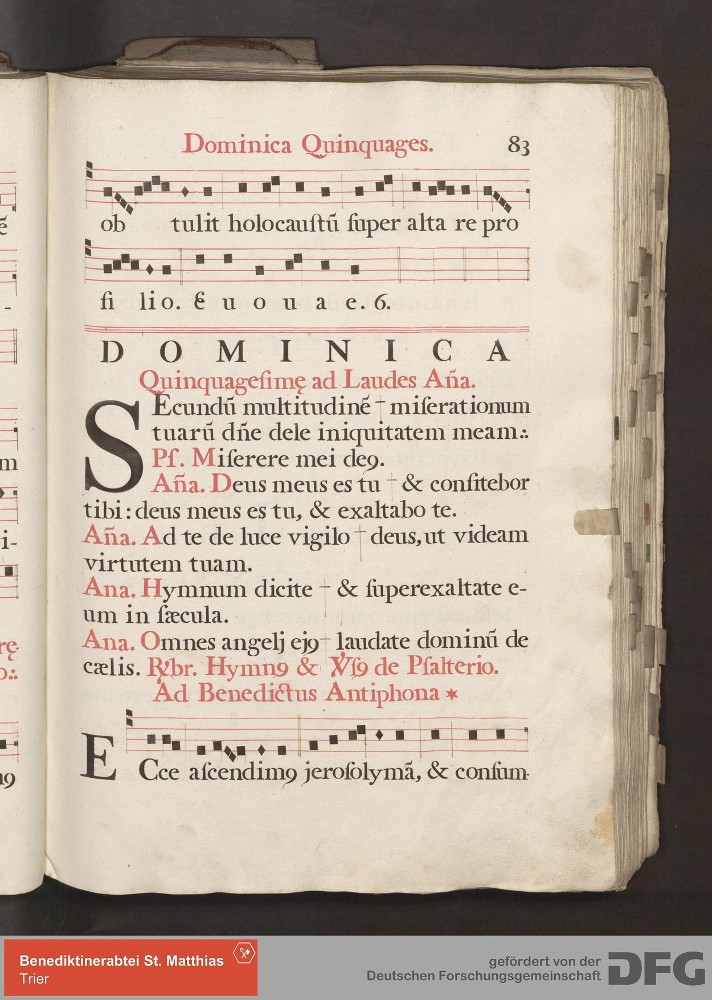 Dominica Quinquages. 83
ob tulit holocauſtũ ſuper alta re pro
ſi lio. & u o u a e. 6.
DOMINICA
Quinquageſimę ad Laudes Aña.
SEcundũ multitudinẽ † miſerationum
tuarũ dñe dele iniquitatem meam:.
Pſ. Miſerere mei deꝯ.
Aña. Deus meus es tu † & confitebor
tibi: deus meus es tu, & exaltabo te.
Aña. Ad te de luce vigilo † deus, ut videam
virtutem tuam.
Ana. Hymnum dicite † & ſuperexaltate e-
um in ſæcula.
Ana. Omnes angelj ejꝯ † laudate dominũ de
cælis. R/br. Hymnꝯ & V/ſꝯ de Pſalterio.
Ad Benedictus Antiphona *
ECce aſcendimꝯ jeroſolymã, & conſum-
ẽ
-
m
i-
rę-
o:.
nꝯ
Benediktinerabtei St. Matthias
Trier
gefördert von der
Deutschen Forschungsgemeinschaft
DFG